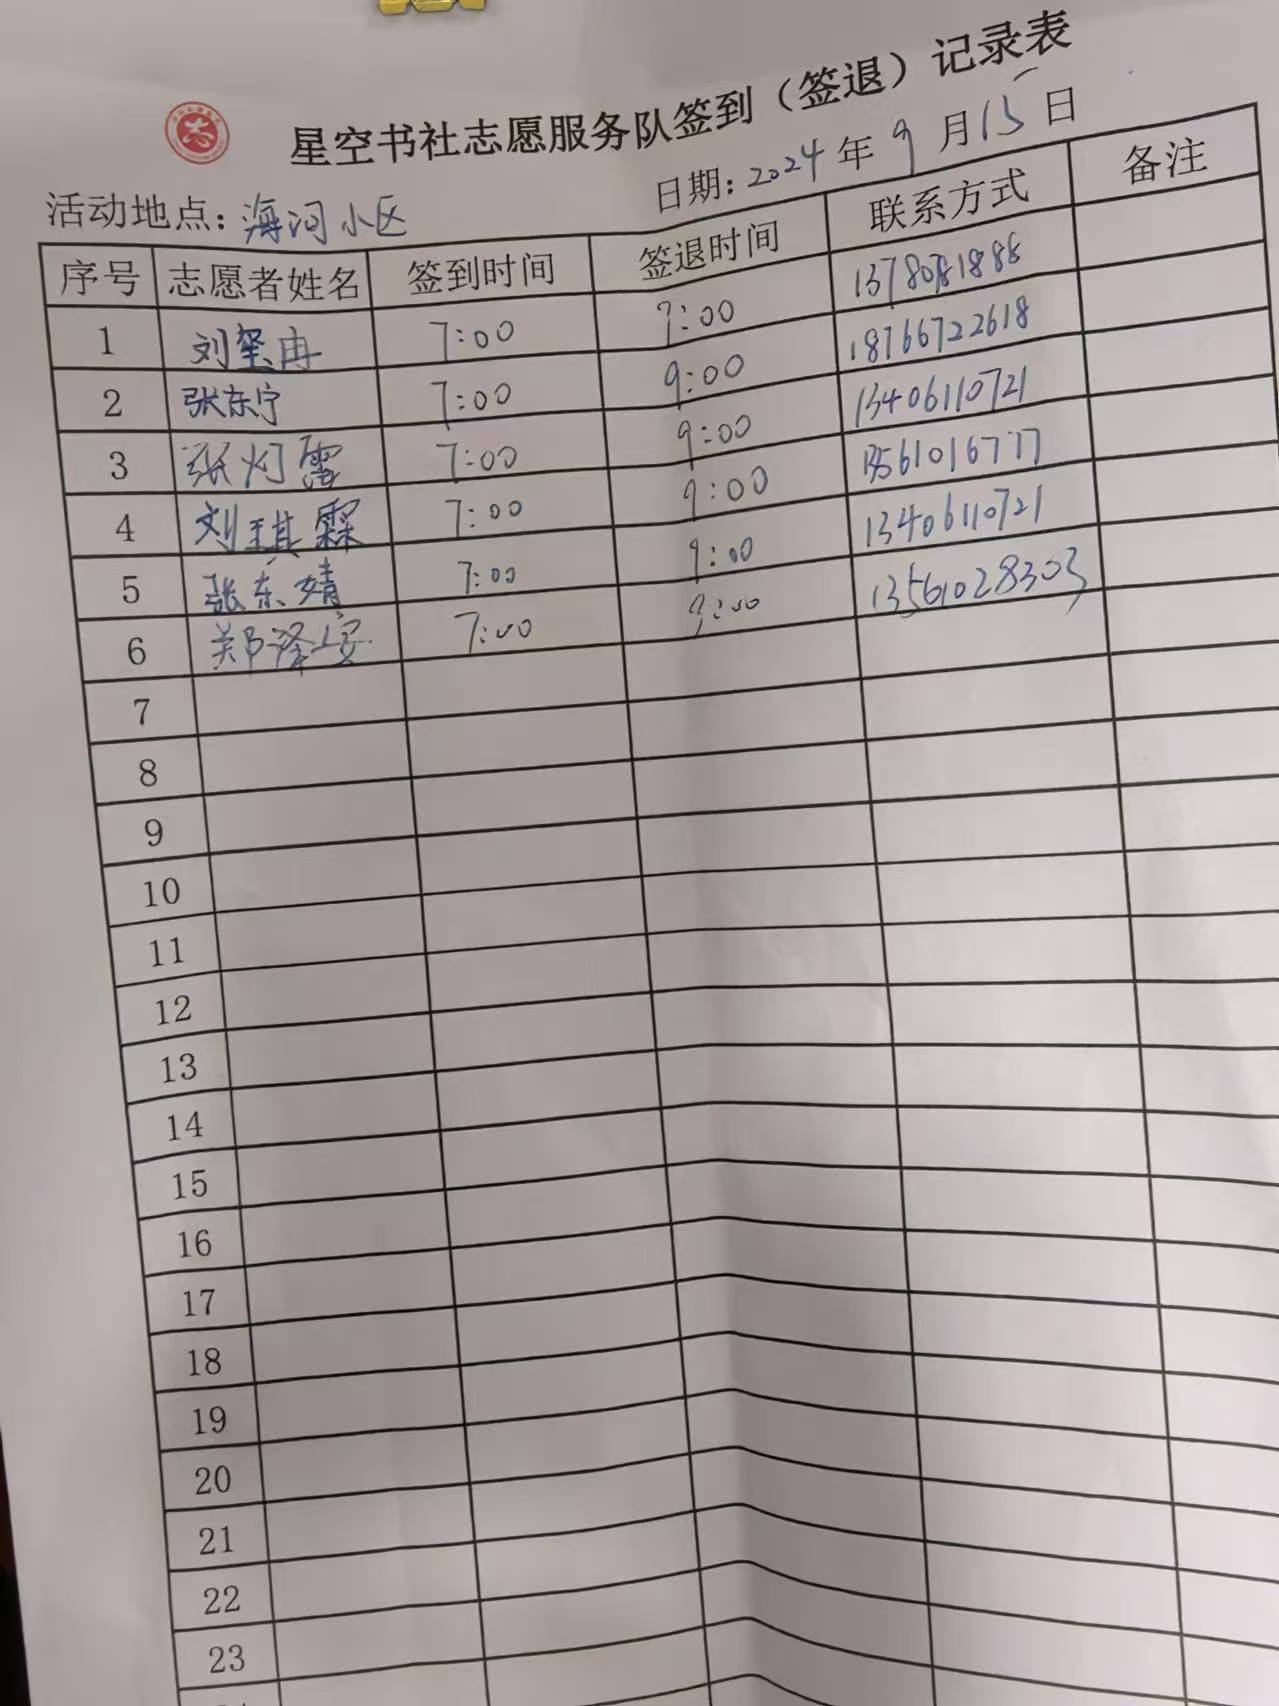 星空书社志愿服务队签到（签退）记录表
活动地点：海河小区 日期：2024年9月15日
序号 志愿者姓名 签到时间 签退时间 联系方式 备注
1 刘玺冉 7:00 9:00
2 张东宁 7:00 9:00 18766722618
3 张灯 7:00 9:00 13406110721
4 刘琪霖 7:00 9:00 13561016777
5 张东婧 7:00 9:00 13406110721
6 郑泽宴 7:00 9:00 13561028303
7
8
9
10
11
12
13
14
15
16
17
18
19
20
21
22
23